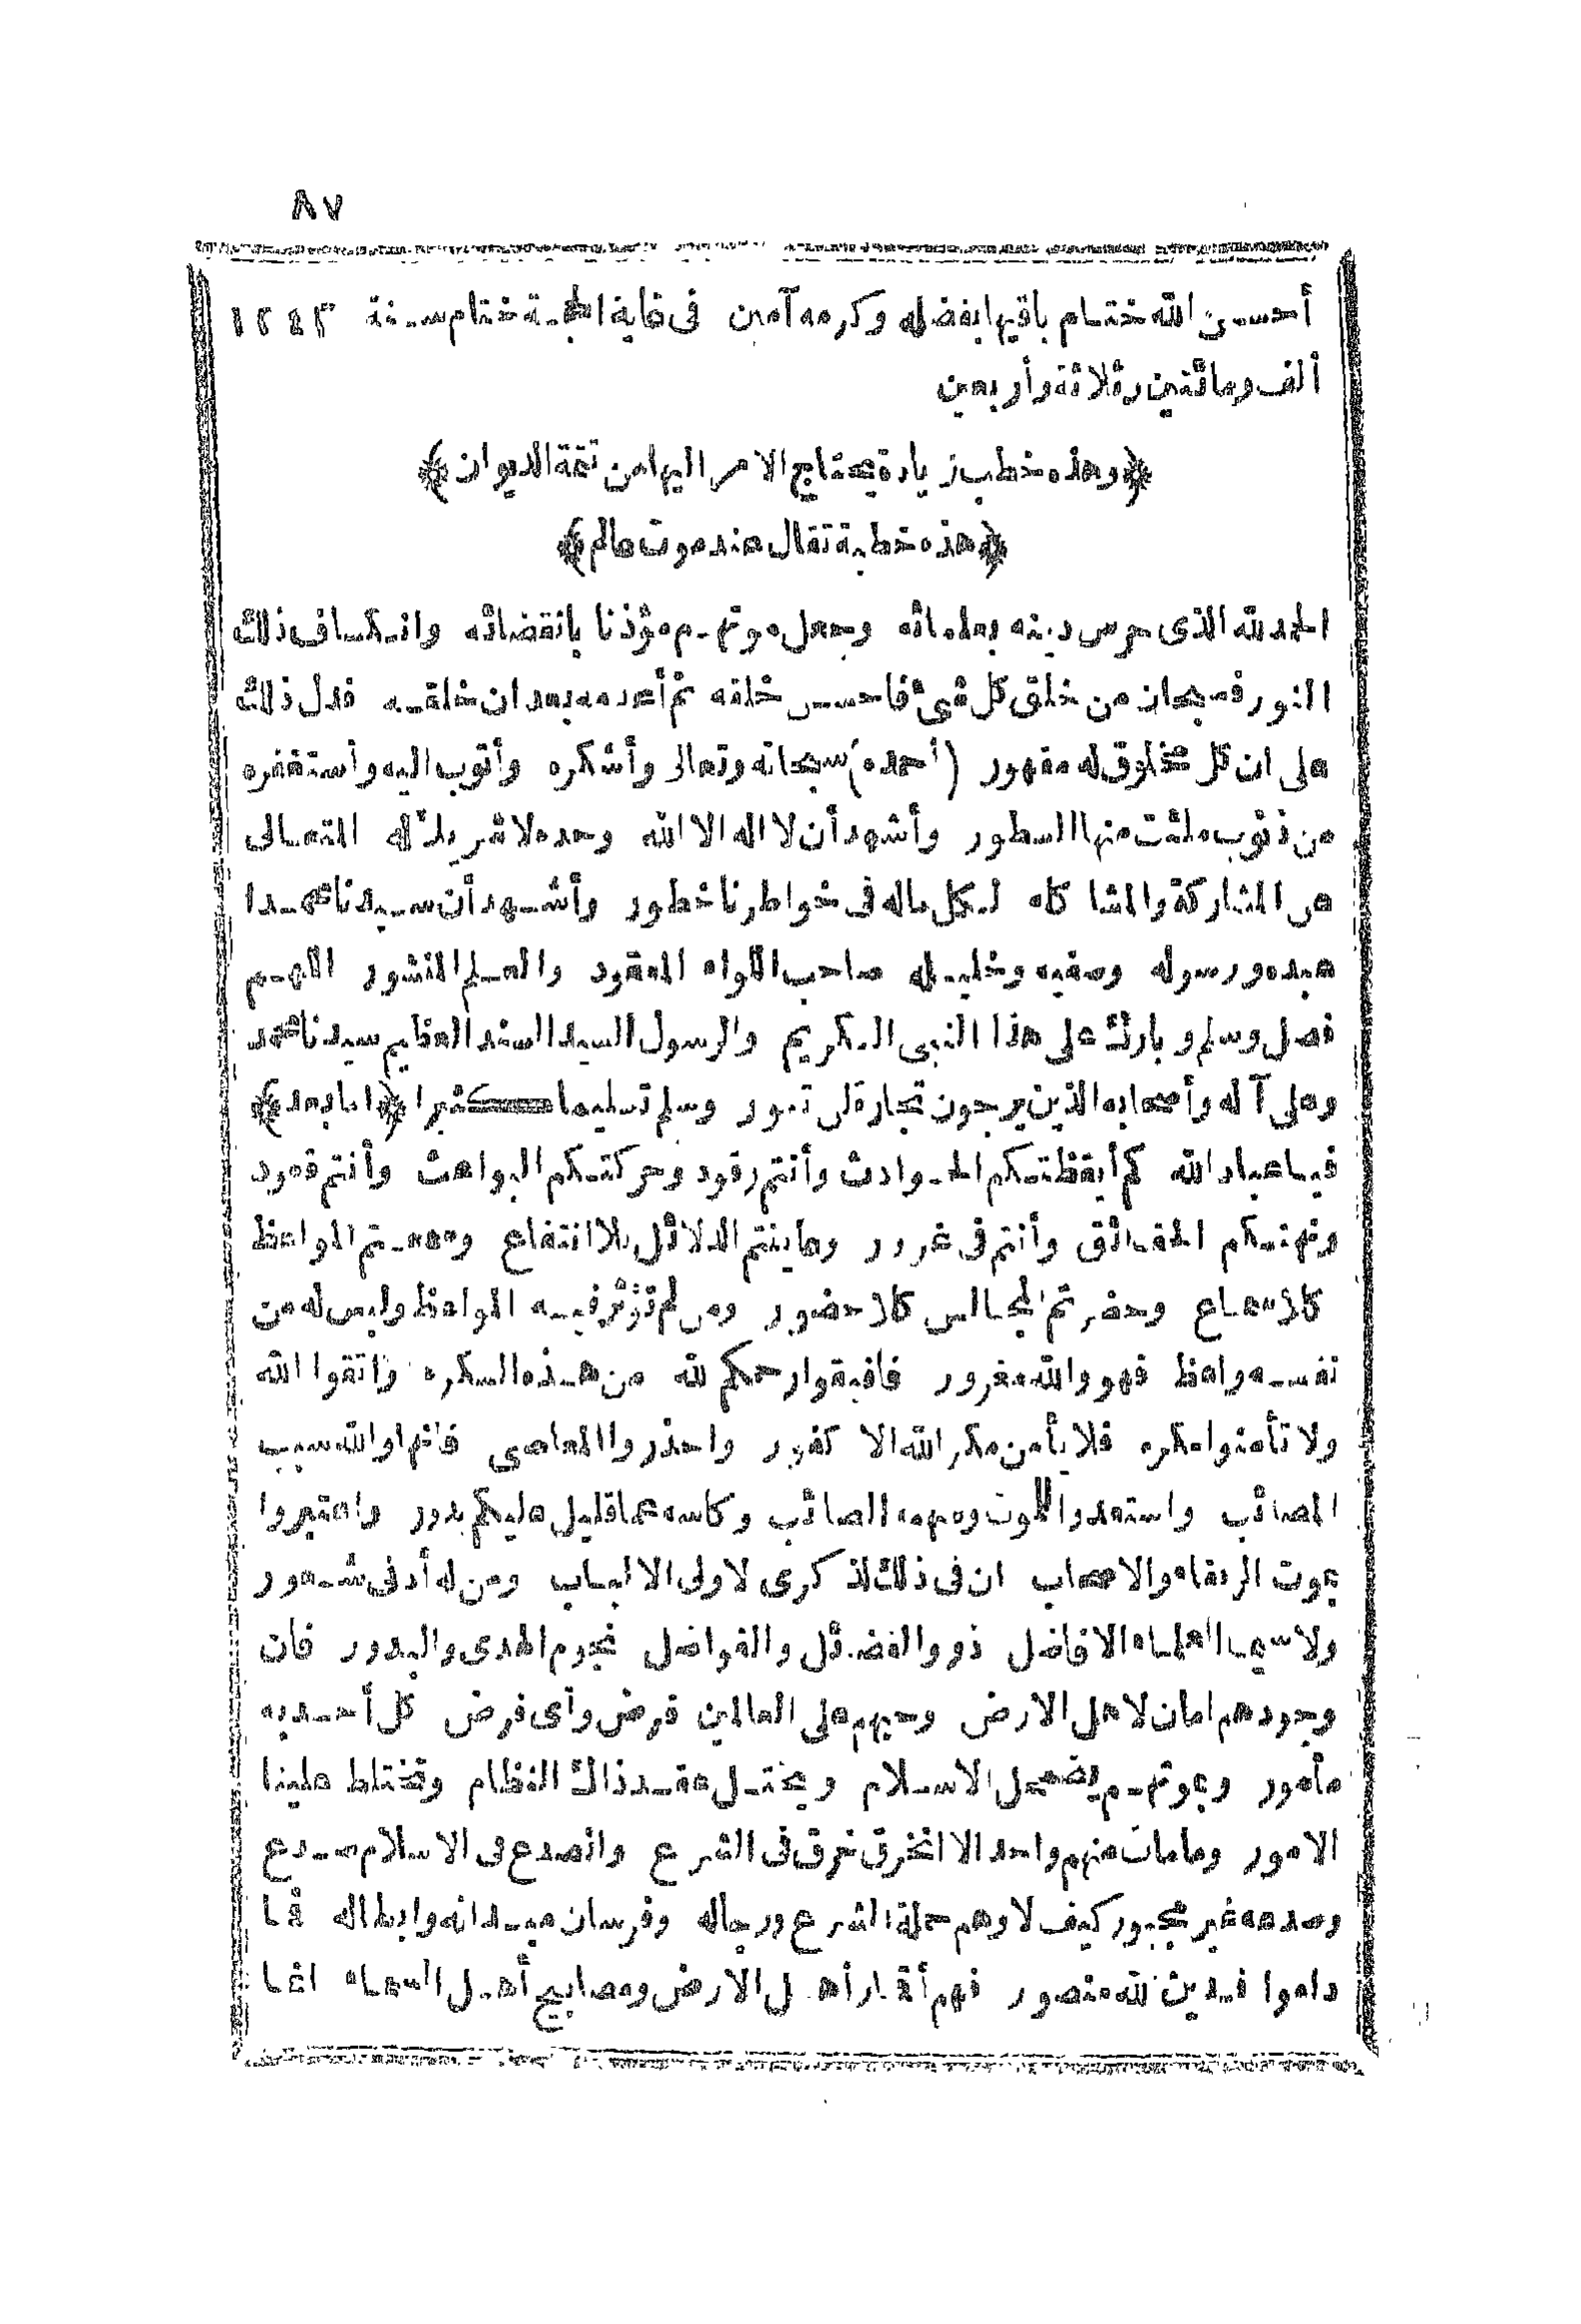 ٨٧
أحسن الله ختام باقيها بفضله وكرمه آمين فى غاية الحجة ختام سنة ١٢٤٣
ألف ومائتين وثلاثة وأربعين
﴿وهذه خطب زيادة يحتاج الامر اليها من تتمة الديوان﴾
﴿هذه خطبة تقال عند موت عالم﴾
الحمد لله الذى حرس دينه بعلمائه وجعل موتهم مؤذنا بانقضائه وانكساف ذلك
النور فسبحان من خلق كل شئ فاحسن خلقه ثم أعدمه بعد ان خلقه فدل ذلك
على ان كل مخلوق له مقهور (أحمده) سبحانه وتعالى وأشكره وأتوب اليه وأستغفره
من ذنوب ملئت منها السطور وأشهد أن لا اله الا الله وحده لا شريك له المتعالى
عن المشاركة والمشاكله لكل ماله فى خواطرنا خطور وأشهد أن سيدنا محمدا
عبده ورسوله وصفيه وخليله صاحب اللواء المعقود والعلم المنشور اللهم
فصل وسلم وبارك على هذا النبى الكريم والرسول السيد السند العظيم سيدنا محمد
وعلى آله وأصحابه الذين يرجون تجارة لن تبور وسلم تسليما كثيرا ﴿اما بعد﴾
فيا عباد الله كم أيقظتكم الحوادث وأنتم رقود وحركتكم البواعث وأنتم قعود
ونهتكم الحقائق وأنتم فى غرور وعاينتم الدلائل بلا انتفاع وسمعتم المواعظ
كلا سماع وحضرتم المجالس كلا حضور ومن لم تؤثر فيه المواعظ وليس له من
نفسه واعظ فهو والله مغرور فافيقوا رحمكم الله من هذه السكره واتقوا الله
ولا تأمنوا مكره فلا يأمن مكر الله الا كفور واحذروا المعاصى فانها والله سبب
المصائب واستعدوا للموت وسهمه الصائب وكاسه عما قليل عليكم يدور واعتبروا
بموت الرفقاء والاصحاب ان فى ذلك لذكرى لاولى الالباب ومن له أدنى شعور
ولا سيما العلماء الافاضل ذوو الفضائل والفواضل نجوم الهدى والبدور فان
وجودهم امان لاهل الارض وحبهم على العالمين فرض وأى فرض كل أحد به
مأمور وبموتهم يضمحل الاسلام ويختل عقد ذاك النظام وتختلط علينا
الامور وما مات منهم واحد الا انخرق خرق فى الشرع وانصدع فى الاسلام صدع
وصدعه غير مجبور كيف لا وهم حملة الشرع ورجاله وفرسان ميدانه وابطاله فما
داموا فدين الله منصور فهم أقمار أهل الارض ومصابيح أهل السماء انما